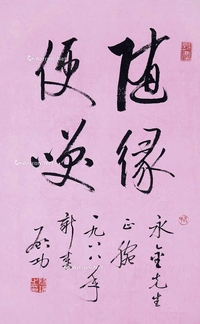 随缘
便咲
永金先生
正腕
一九八八年
新春
启功